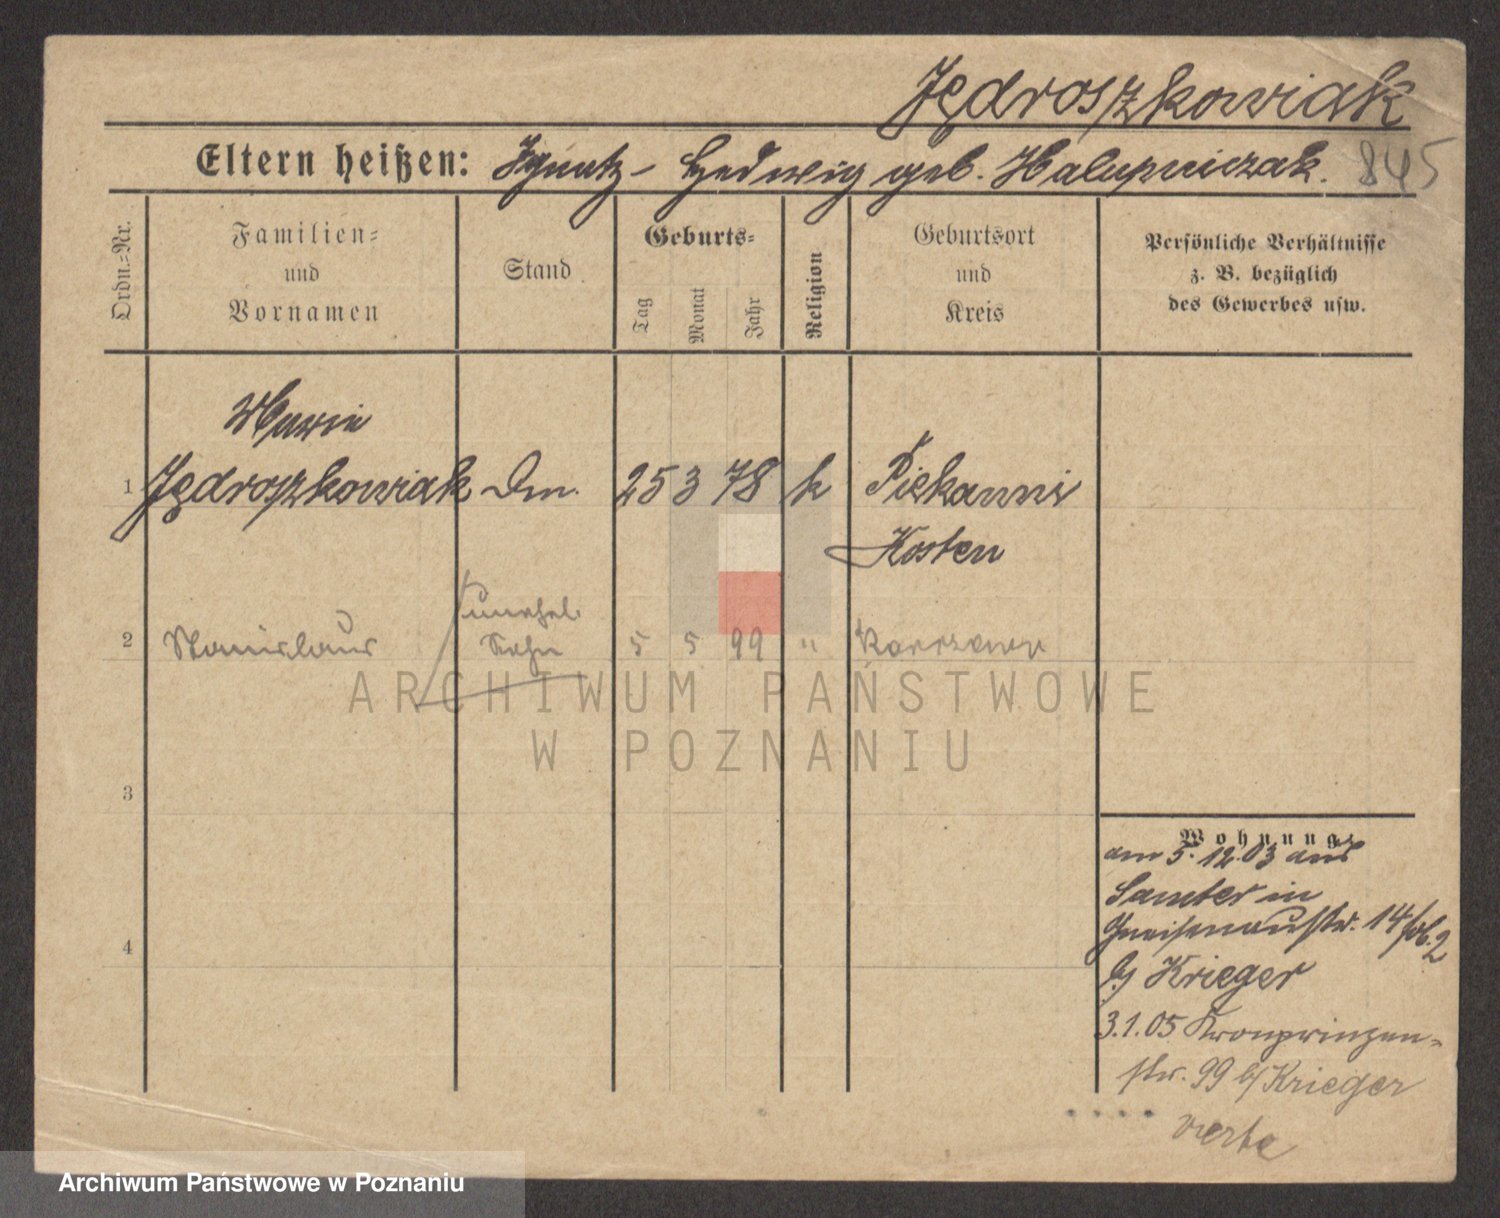 Jędroszkowiak
Eltern heißen: Ignatz - Hedwig geb. Halupniczak. 845
Ordn.-Nr.
Familien-
und
Vornamen
Stand
Geburts-
Tag
Monat
Jahr
Religion
Geburtsort
und
Kreis
Persönliche Verhältnisse
z. B. bezüglich
des Gewerbes usw.
Marie
1 Jędroszkowiak Dm. 25 3 78 k Piekanni
Kosten
unehel.
2 Stanislaus Sohn 5 5 99 "
3
4
Wohnung
am 5.12.03 aus
Samter in
Gneisenaustr. 14
b/ Krieger
3.1.05 Kronprinzen-
str. 99 b/ Krieger
verte
ARCHIWUM PAŃSTWOWE
W POZNANIU
Archiwum Państwowe w Poznaniu